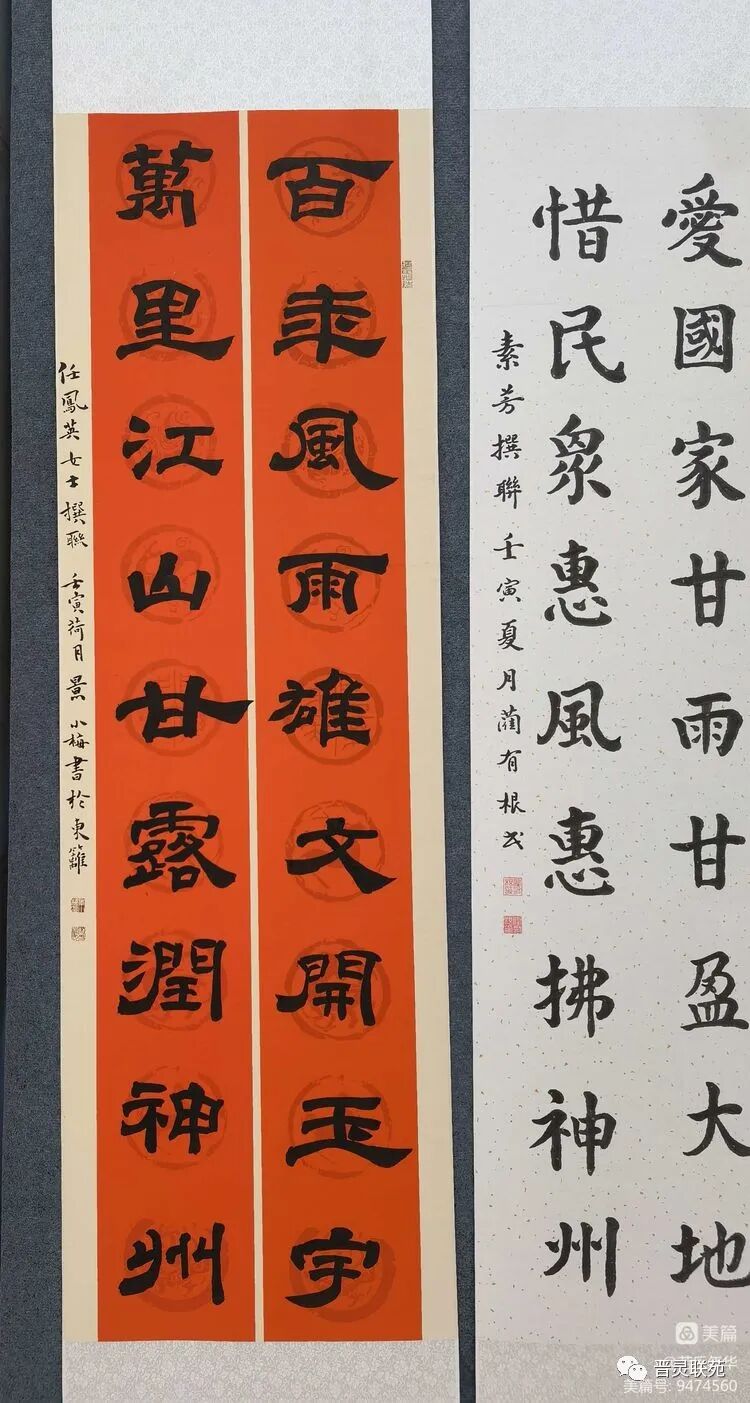 愛國家甘雨甘盈大地
惜民眾惠風惠拂神州
素芳撰聯壬寅夏月藺有根书
百年風雨雄文開玉宇
萬里江山甘露潤神州
任鳳英女士撰聯 壬寅荷月景小梅書於東籬
美篇
晋灵联苑
美篇号: 9474560